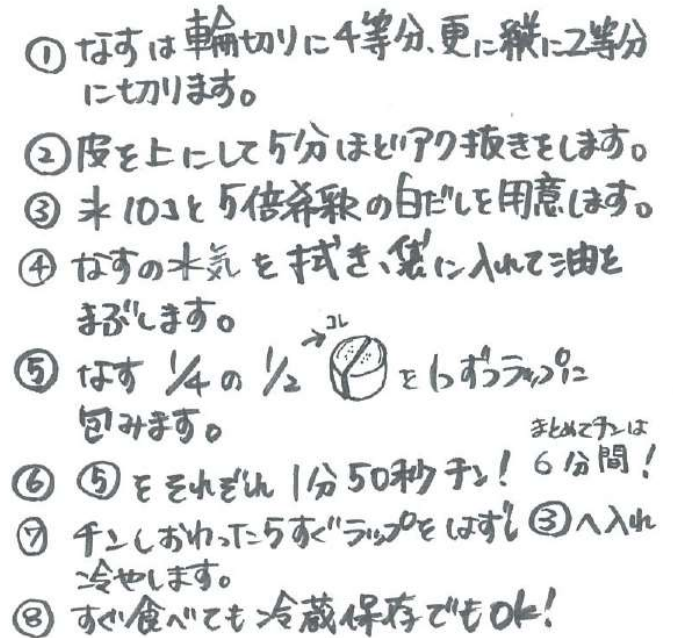 ① なすは輪切りに4等分、更に縦に2等分
に切ります。
② 皮を上にして5分ほどアク抜きをします。
③ 氷10コと5倍希釈の白だしを用意します。
④ なすの水気を拭き、袋に入れて油を
まぶします。
コレ
⑤ なす 1/4の1/2 → を1つずつラップに
包みます。
まとめてチンは
⑥ ⑤をそれぞれ1分50秒チン! 6分間!
⑦ チンしおわったらすぐラップをはずし③へ入れ
冷やします。
⑧ すぐ食べても冷蔵保存でもOK!